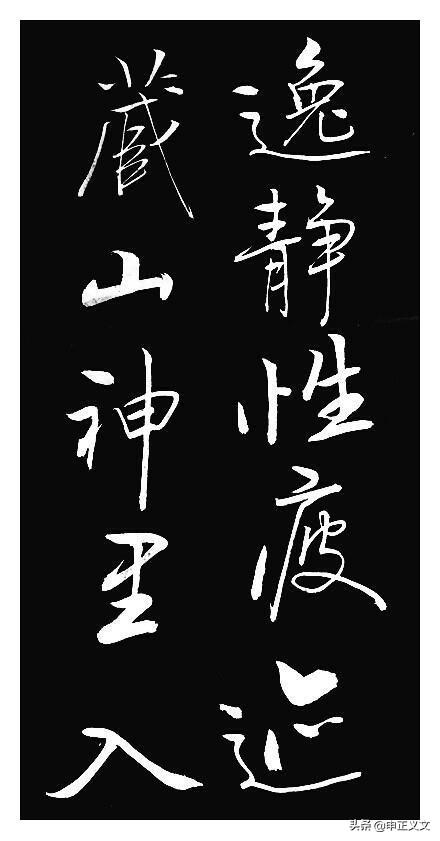 逸静性疲
藏山神里入
头条 @申正义文